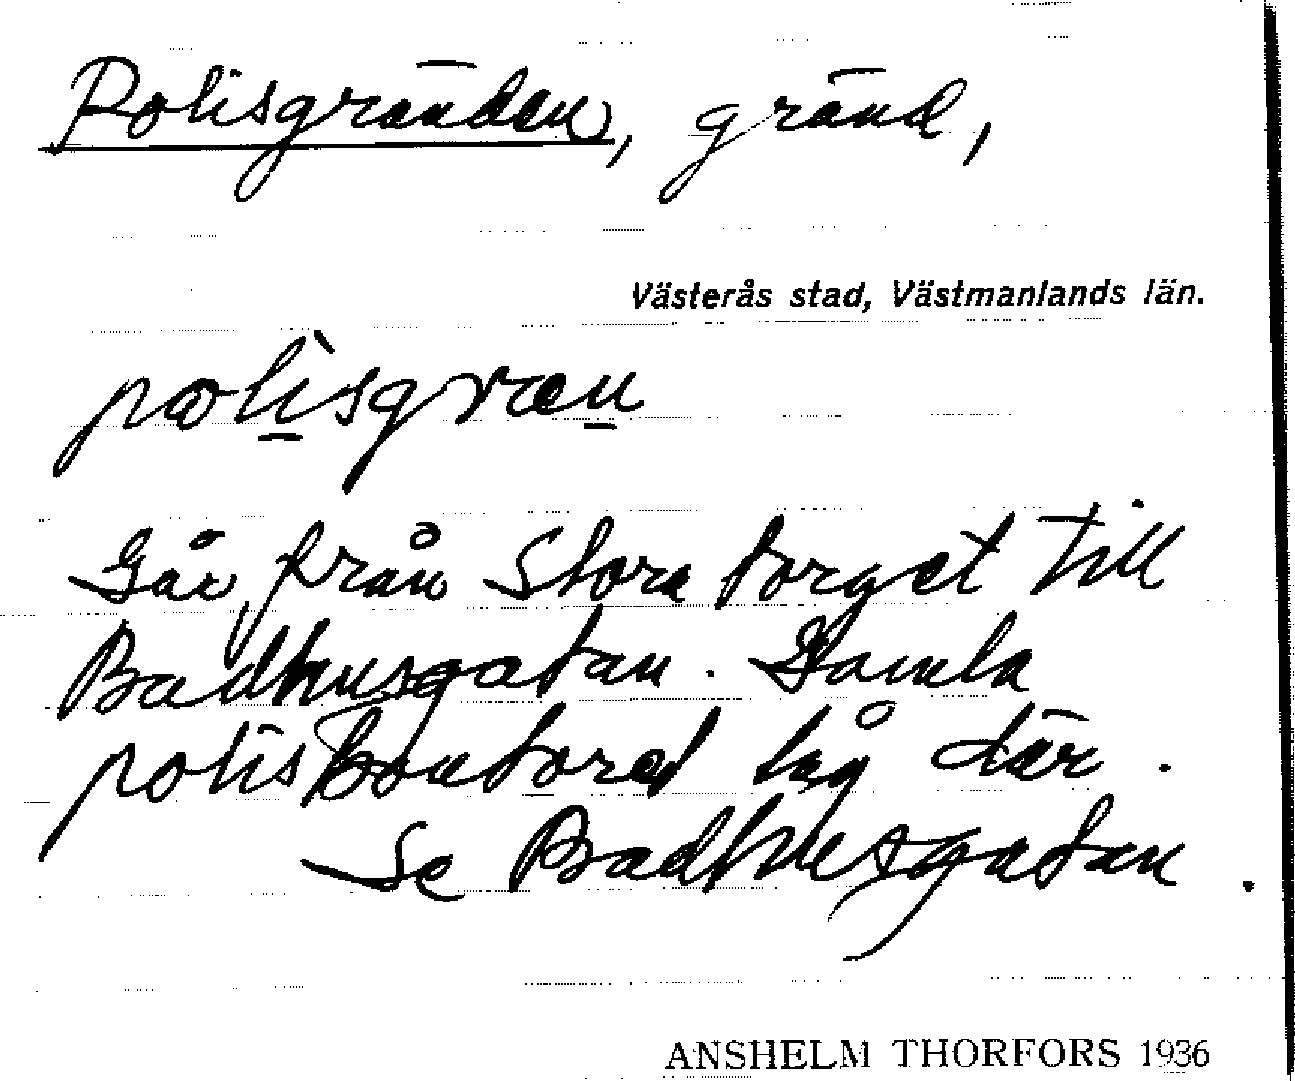 Polisgränden, gränd,
Västerås stad, Västmanlands län.
polìsgræn
Går från Stora torget till
Badhusgatan. Gamla
poliskontoret låg där.
Se Badhusgatan.
ANSHELM THORFORS 1936